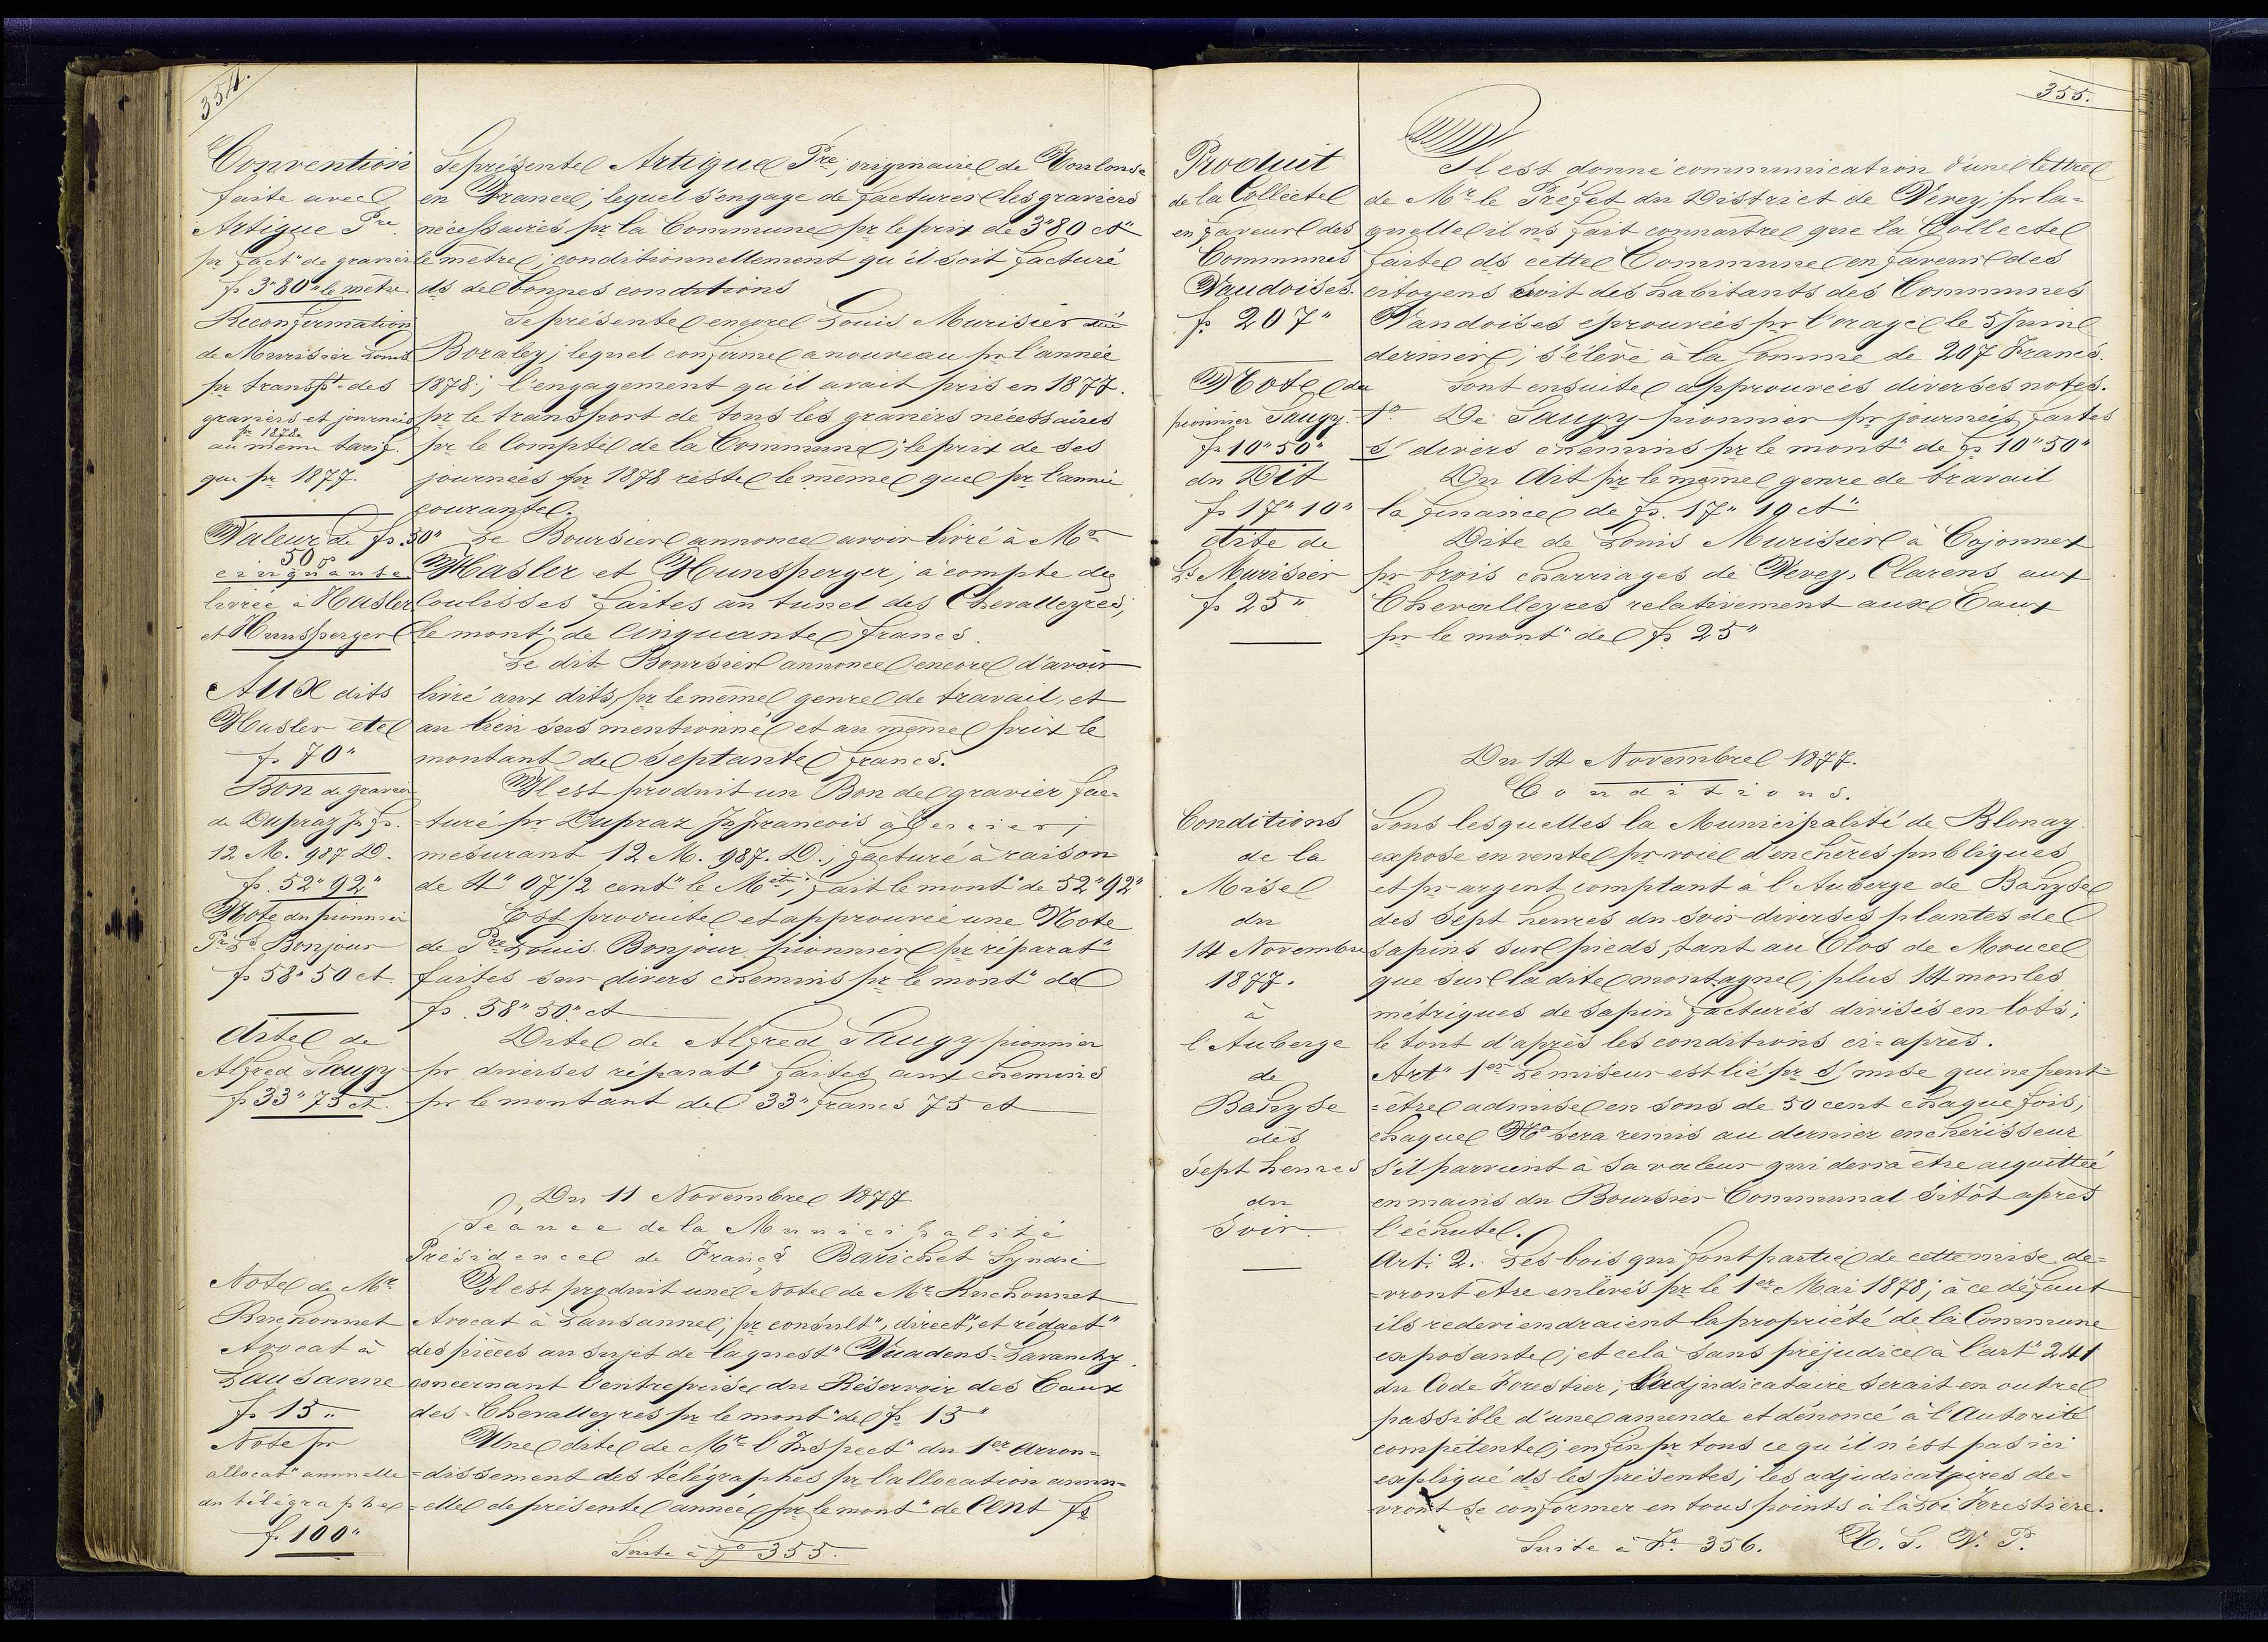 354.
Convention
faite avec
Artigue Pre.
pr fact" de gravier
fs 3"80" le mètre
Reconfirmation
de Murisier Louis
pr transpt. des
graviers et journées
pr 1878
au même tarif.
que pr 1877.
Valeur de fs. 50"
50
cinquante
livrée à Hasler
et Hunsperger
Aux dits
Hasler etc
fs 70"
Bon de gravier
de Dupraz Js fs.
12 M. 987 D.
fs. 52"92"
Note du pionnier
Pre Ls Bonjour
fs 58"50 ct.
dite de
Alfred Saugy
fs 33"75 ct.
Note de Mr
Ruchonnet
Avocat à
Lausanne
fs 15"
Note pr
allocat" annuelle
du télégraphe
fs 100"
Se présente Artigue Pre, originaire de Toulouse
en France; lequel s'engage de facturer les graviers
nécessaires pr la Commune pr le prix de 3"80 ct"
le mètre; conditionnellement qu'il soit facturé
ds de bonnes conditions
Se présente encore Louis Murisier
Boraley; lequel confirme a nouveau pr l'année
1878; l'engagement qu'il avait pris en 1877.
pr le transport de tous les graviers nécessaires
pr le Compte de la Commune; le prix de ses
journées pr 1878 reste le même que pr l'année
courante.
Le Boursier annonce avoir livré à Mrs
Hasler et Hunsperger; à compte des
coulisses faites au tunel des Chevalleyres,
le mont" de Cinquante francs.
Le dit Boursier annonce encore d'avoir
livré aux dits, pr le même genre de travail, et
au lieu sus mentionné et au même prix le
montant de Septante francs.
Il est produit un Bon de gravier fac-
-turé pr Dupraz Js francois à Cercier;
mesurant 12 M. 987. D.; facturé à raison
de 4" 07 1/2 cent" le Mèt; fait le mont" de 52"92"
Est produite et approuvée une Note
de Pre Louis Bonjour pionnier pr réparat"
faites sur divers chemins pr le mont" de
fs. 58"50" ct
Dite de Alfred Saugy pionnier
pr diverses réparat" faites aux chemins
pr le montant de 33" francs 75 ct
Du 11 Novembre 1877.
Séance de la Municipalité
Présidence de Franç: Barichet Syndic
Il est produit une Note de Mr Ruchonnet
Avocat à Lausanne; pr consult", direct", et rédact"
des pièces au sujet de la quest" Vuadens-Lavanchy
concernant l'entreprise du Réservoir des Eaux
des Chevalleyres pr le mont" de fs 15"
Une dite de Mr l'Inspect" du 1er Arron-
-dissement des télégraphes pr l'allocation annu-
-elle de présente année pr le mont" de Cent fs
Suite à fo 355.
355.
Produit
de la Collecte
en faveur des
Communes
Vaudoises.
fs 207"
Note du
pionnier Saugy
fs 10"50"
du Dit
fs 17"10"
dite de
Ls Murisier
fs 25"
Conditions
de la
Mise
du
14 Novembre
1877.
à
l'Auberge
de
Bahyse
dès
Sept heures
du
Soir.
Il est donné communication d'une lettre
de Mr le Préfet du District de Vevey, pr la-
quelle il ns fait connaître que la Collecte
faite ds cette Commune en faveur des
citoyens soit des habitants des Communes
Vaudoises éprouvées pr l'orage le 5 Juin
dernier; s'élève à la Somme de 207 Francs.
Sont ensuite approuvées diverses notes.
1o De Saugy pionnier pr journées faites
s/ divers chemins pr le mont" de fs 10"50"
Du dit pr le même genre de travail
la finance de fs. 17"10 ct"
Dite de Louis Murisier à Cojonnex
pr trois charriages de Vevey, Clarens aux
Chevalleyres relativement aux Eaux
pr le mont" de fs 25"
Du 14 Novembre 1877.
Conditions.
Sous lesquelles la Municipalité de Blonay
expose en vente pr voie d'enchères publiques
et pr argent comptant à l'Auberge de Bahyse
des Sept heures du soir diverses plantes de
sapins sur pieds, tant au Clos de Moucel
que sur la dite montagne; plus 14 moules
métriques de sapin facturés divisés en lots;
le tout d'après les conditions ci-après.
Art" 1er Le miseur est lié pr s/ mise qui ne peut-
-être admise en sous de 50 cent chaque fois;
chaque No sera remis au dernier enchérisseur
s'il parvient à sa valeur qui devra être acquittée
en mains du Boursier Communal sitôt après
l'échute.
Art: 2. Les bois qui font partie de cette mise de-
-vront être enlevés pr le 1er Mai 1878; à ce défaut
ils redeviendraient la propriété de la Commune
exposante; et cela sans préjudice à l'art" 241
du Code Forestier; l'adjudicataire serait en outre
passible d'une amende et dénoncé à l'Autorité
compétente; enfin pr tous ce qu'il n'est pas ici
expliqué ds les présentes; les adjudicataires de-
-vront se conformer en tous points à la Loi Forestière.
Suite à Fo. 356. T. S. V. P.